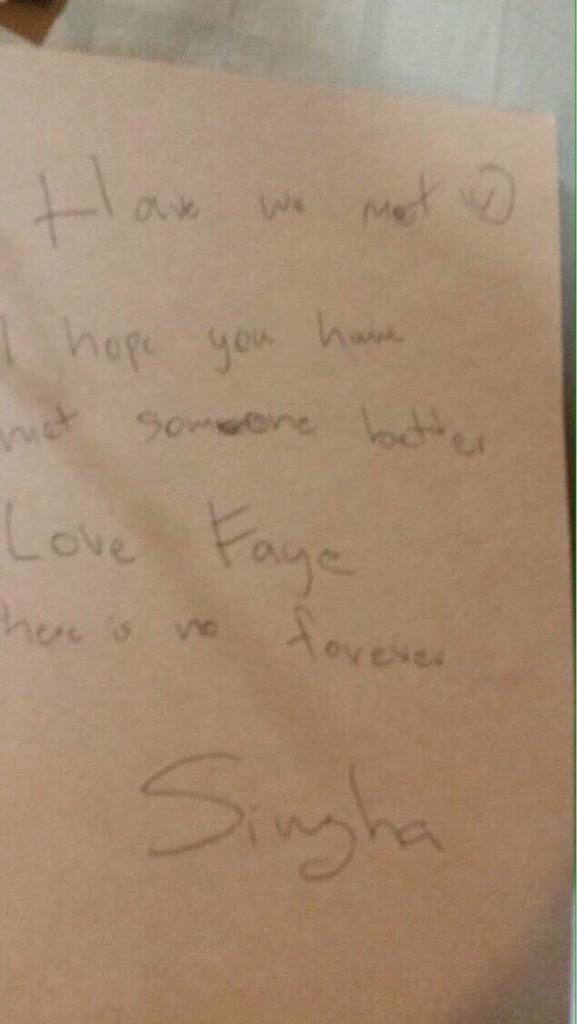 Have we met
I hope you have
met someone better
Love Faye
here is no forever
Singha